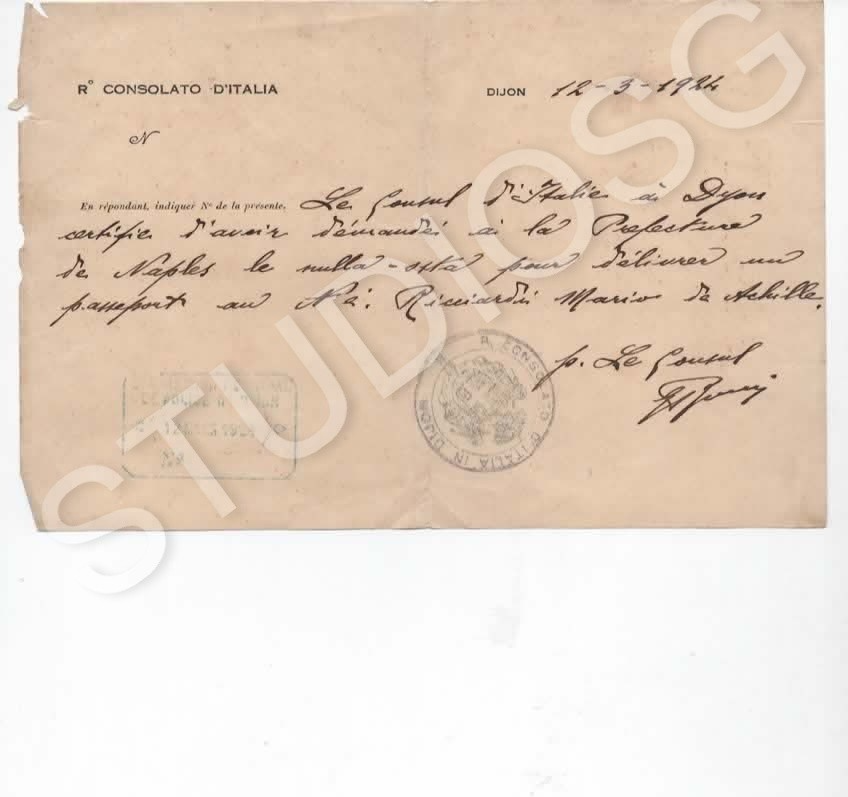 R° CONSOLATO D'ITALIA
DIJON 12-3-1924
N
En répondant, indiquer N° de la présente. Le Consul d'Italie à Dijon
certifie d'avoir démandé à la Prefecture
de Naples le nulla-osta pour délivrer un
passeport au N é. Ricciardi Mario de Achille.
p. Le Consul
R. CONSOLATO D'ITALIA IN DIJON
STUDIOSG